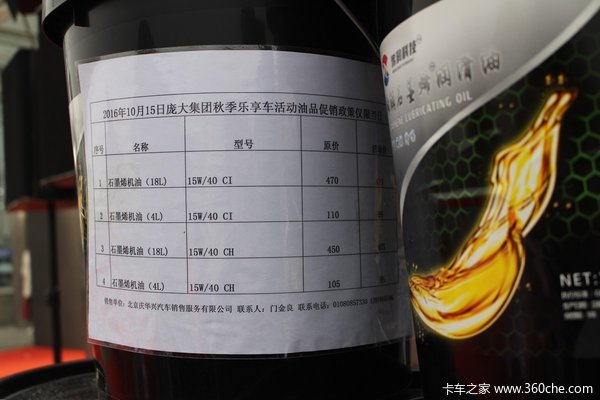 2016年10月15日庞大集团秋季乐享车活动油品促销政策仅限
序号 名称 型号 原价
1 石墨烯机油（18L） 15W/40 CI 470
2 石墨烯机油（4L） 15W/40 CI 110
3 石墨烯机油（18L） 15W/40 CH 450
4 石墨烯机油（4L） 15W/40 CH 105
销售单位：北京庆华兴汽车销售服务有限公司 联系人：门金良 联系电话：01080857330
科技
石墨烯润滑油
LUBRICATING OIL
NET:
卡车之家 www.360che.com